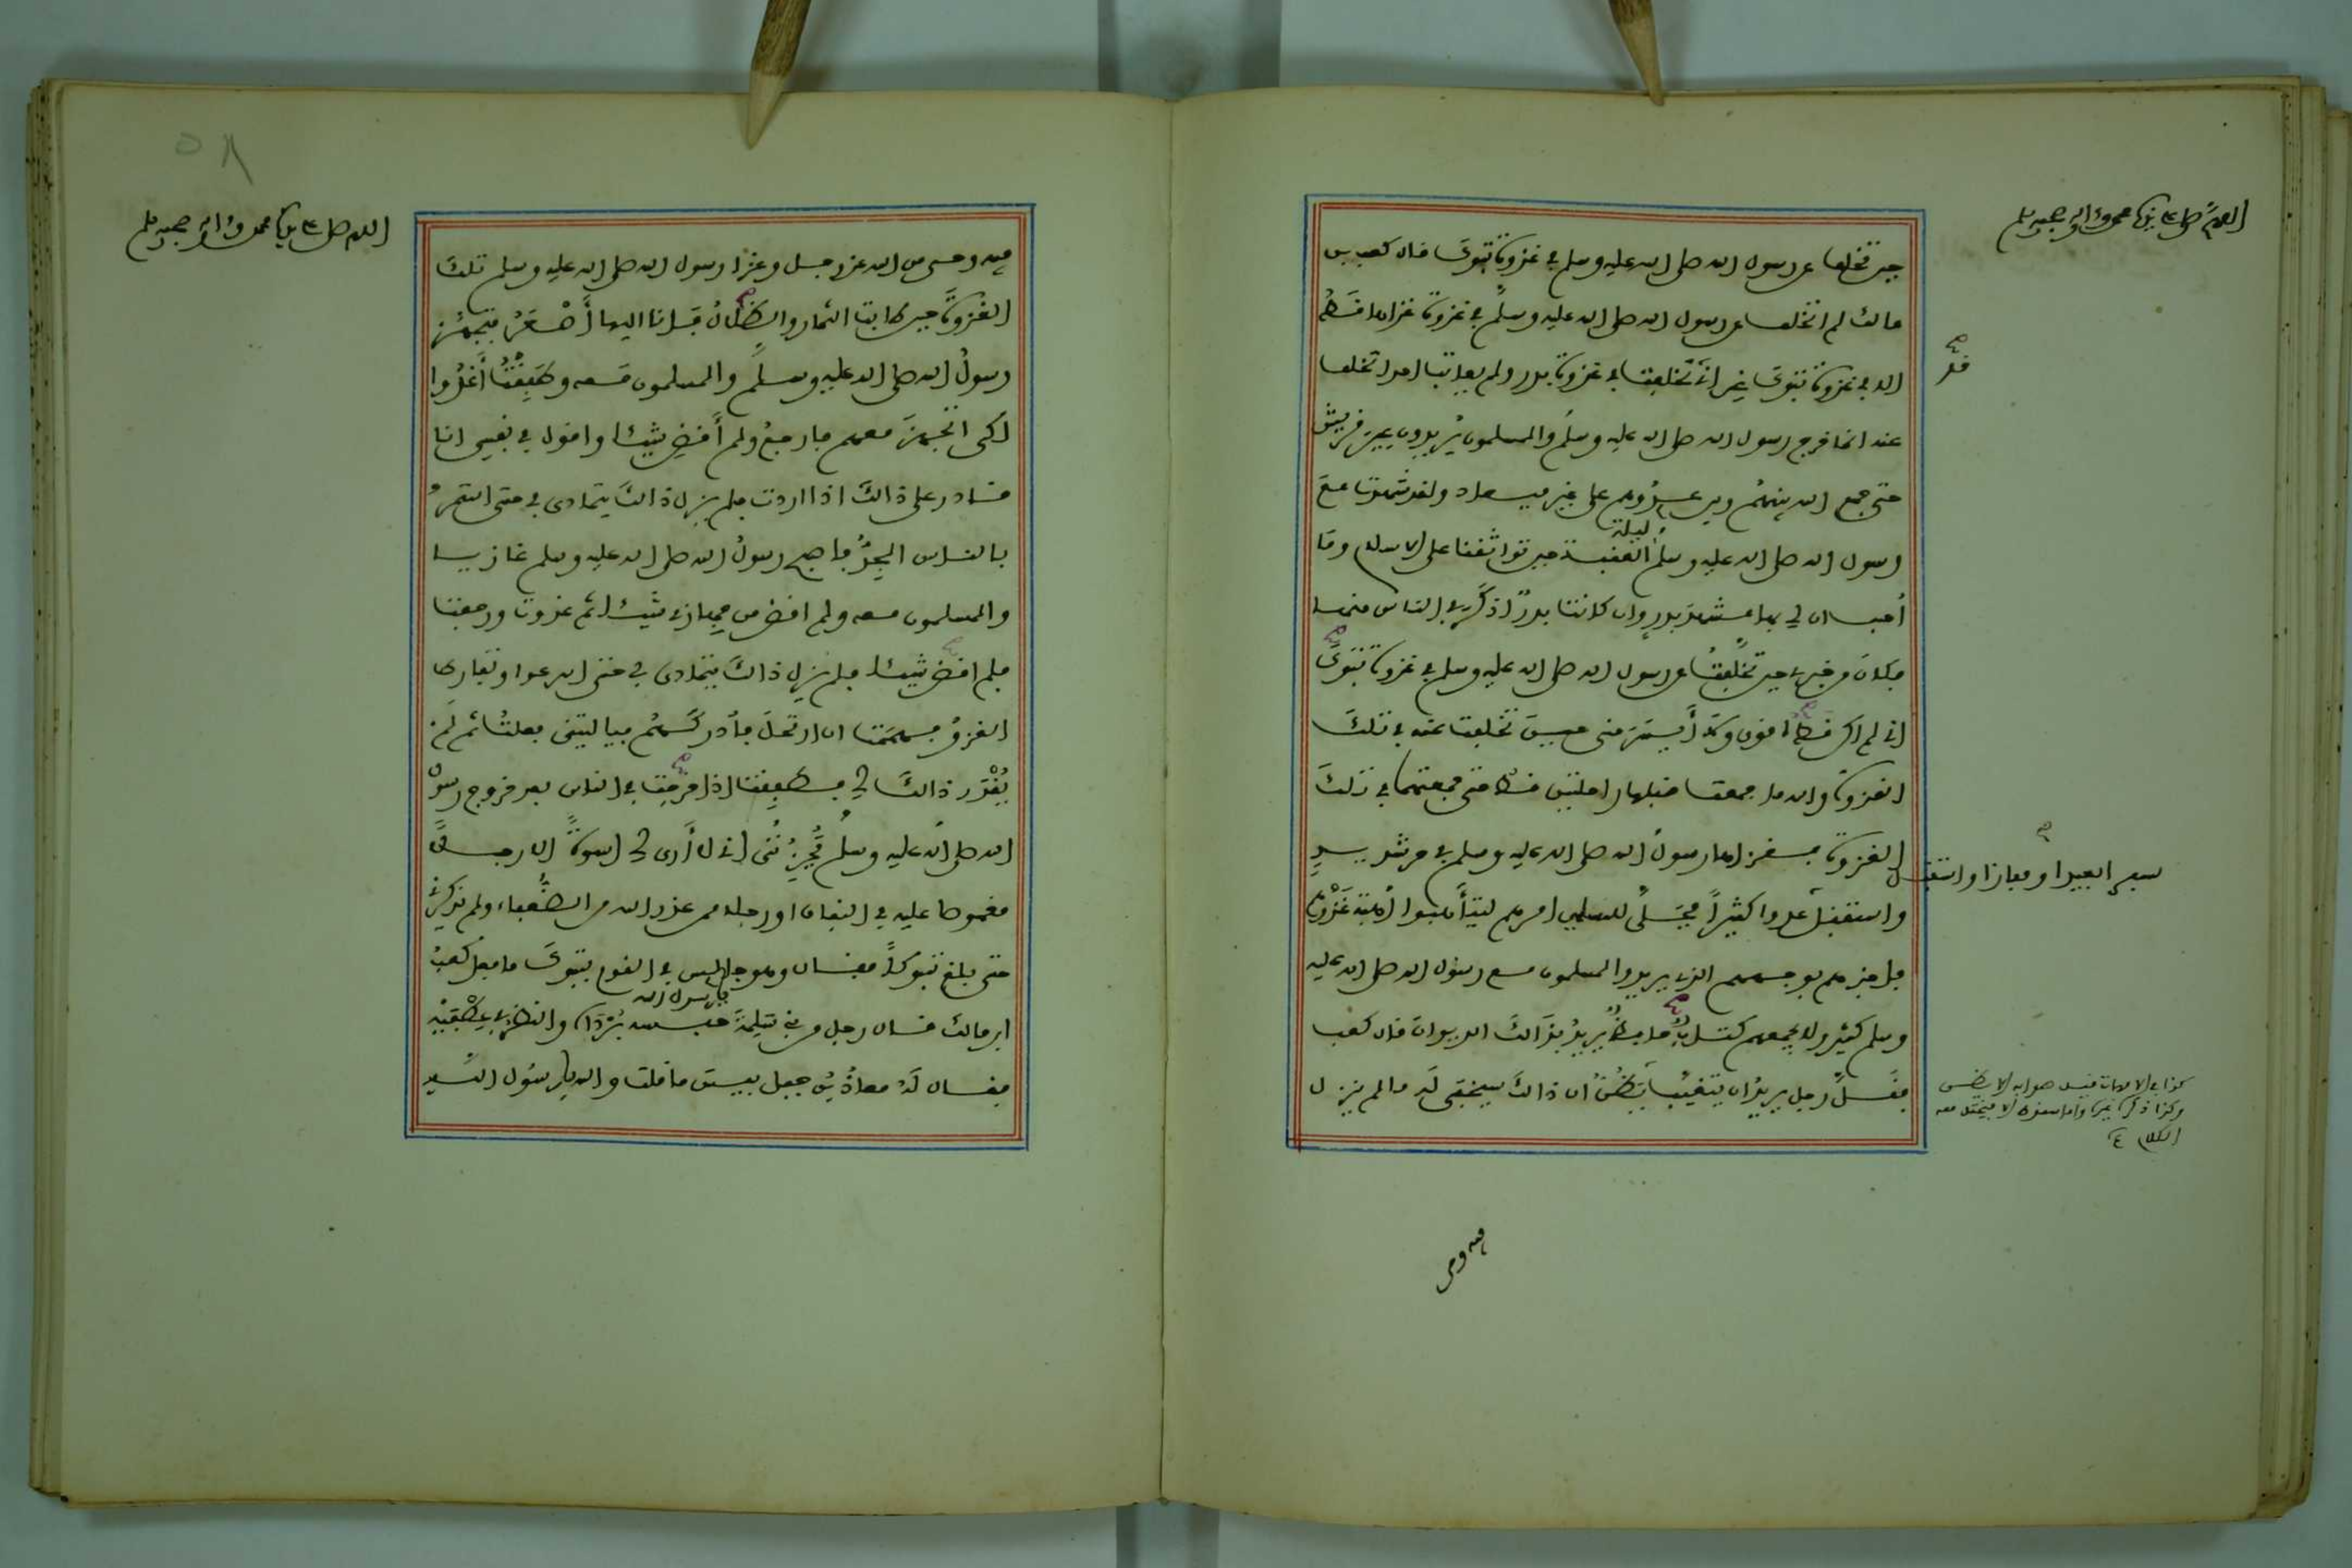 اللهم صل على سيدنا محمد وءاله وصحبه وسلم
حين تخلف عن رسول الله صلى الله عليه وسلم في غزوة تبوك قال كعب بن
مالك لم اتخلف عن رسول الله صلى الله عليه وسلم في غزوة غزاها قط
الا في غزوة تبوك غير اني تخلفت في غزوة بدر ولم يعاتب احدا تخلف
قد
عنه انما خرج رسول الله صلى الله عليه وسلم والمسلمون يريدون عير قريش
حتى جمع الله بينهم وبين عدوهم على غير ميعاد ولقد شهدت مع
رسول الله صلى الله عليه وسلم ليلة العقبة حين تواثقنا على الاسلام وما
أحب ان لي بها مشهد بدر وان كانت بدر اذكر في الناس منها
فكان من خبري حين تخلفت عن رسول الله صلى الله عليه وسلم في غزوة تبوك
اني لم اكن قط اقوى ولا أيسر مني حين تخلفت عنه في تلك
الغزوة والله ما جمعت قبلها راحلتين قط حتى جمعتهما في تلك
الغزوة فغزاها رسول الله صلى الله عليه وسلم في حر شديد
سفرا بعيدا ومفازا واستقبل
واستقبل عدوا كثيرا فجلى للمسلمين امرهم ليتأهبوا أهبة غزوهم
فاخبرهم بوجههم الذي يريد والمسلمون مع رسول الله صلى الله عليه
وسلم كثير ولا يجمعهم كتاب حافظ يريد بذالك الديوان قال كعب
فقل رجل يريد ان يتغيب يظن ان ذالك سيخفى له ما لم ينزل
كذا في الامهات قيل صوابه الا يظن
وكذا ذكره غير واحد الا فيختل معه
الكلام
فيه وحي
اللهم صل على سيدنا محمد وءاله وصحبه وسلم
٥٨
فيه وحي من الله عز وجل وغزا رسول الله صلى الله عليه وسلم تلك
الغزوة حين طابت الثمار والظلال فانا اليها أصعر فتجهز
رسول الله صلى الله عليه وسلم والمسلمون معه وطفقت أغدوا
لكي اتجهز معهم فارجع ولم أقض شيئا واقول في نفسي انا
قادر على ذالك اذا اردت فلم يزل ذالك يتمادى بي حتى استمر
بالناس الجد فاصبح رسول الله صلى الله عليه وسلم غازيا
والمسلمون معه ولم اقض من جهازي شيئا ثم غدوت ورجعت
فلم اقض شيئا فلم يزل ذالك يتمادى بي حتى اسرعوا وتفارط
الغزو فهممت ان ارتحل فأدركهم فيا ليتني فعلت ثم لم
يقدر ذالك لي فطفقت اذا خرجت في الناس بعد خروج رسول
الله صلى الله عليه وسلم يحزنني اني لا أرى لي اسوة الا رجلا
مغموصا عليه في النفاق او رجلا ممن عذر الله من الضعفاء ولم يذكرني
حتى بلغ تبوكا فقال وهو جالس في القوم بتبوك ما فعل كعب
ابن مالك قال رجل من بني سلمة يا رسول الله حبسه برداه والنظر في عطفيه
فقال له معاذ بن جبل بيس ما قلت والله يا رسول الله